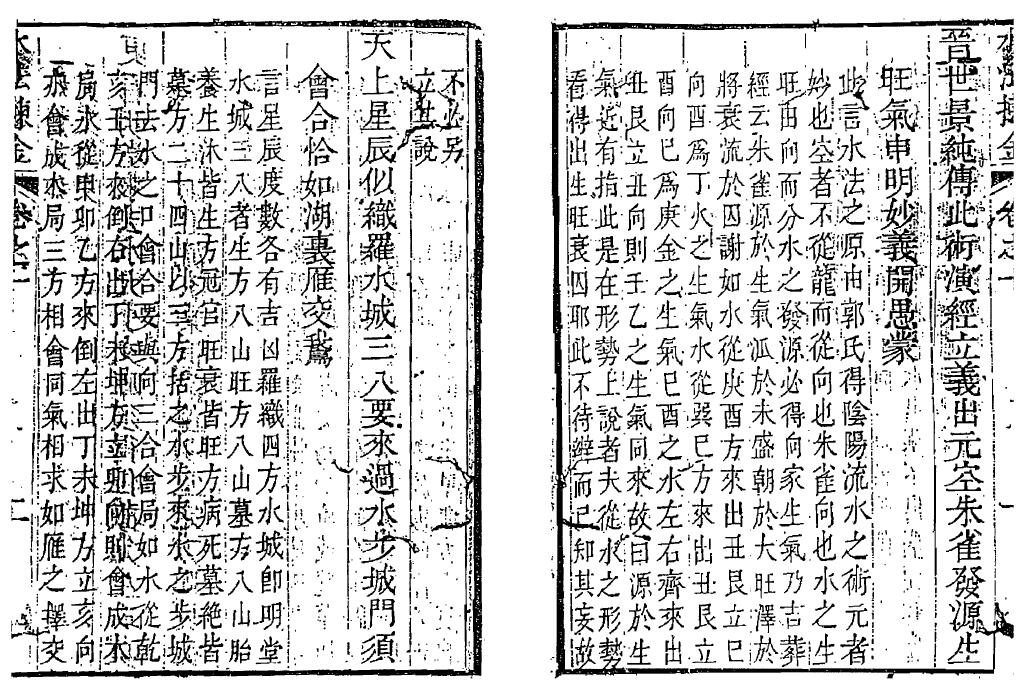 晉世景純傳此術演經立義出元空朱雀發源生
旺氣申明妙義開愚蒙
此言水法之原由郭氏得陰陽流水之術元者
妙也空者不從龍而從向也朱雀向也水之生
旺由向而分水之發源必得向家生氣乃吉葬
經云朱雀源於生氣派於未盛朝於大旺澤於
將衰流於囚謝如水從庚酉方來出丑艮立巳
向酉爲丁火之生氣水從巽巳方來出丑艮立
酉向巳爲庚金之生氣巳酉之水左右齊來出
丑艮立丑向則壬乙之生氣同來故曰源於生
氣近有指此是在形勢上說者夫從水之形勢
看得出生旺衰囚耶此不待辨而已知其妄故
不必另
立其說
天上星辰似織羅水城三八要來過水步城門須
會合恰如湖裏雁交鵞
言星辰度數各有吉凶羅織四方水城卽明堂
水城三八者生方八山旺方八山墓方八山胎
養生沐皆生方冠官旺衰皆旺方病死墓絶皆
墓方二十四山以三方括之水步來水之步城
門去水之口會合要與向三合會局如水從乾
亥壬方來倒右出丁未坤方立卯向則會成木
局水從甲卯乙方來倒左出丁未坤方立亥向
亦會成木局三方相會同氣相求如雁之擇交